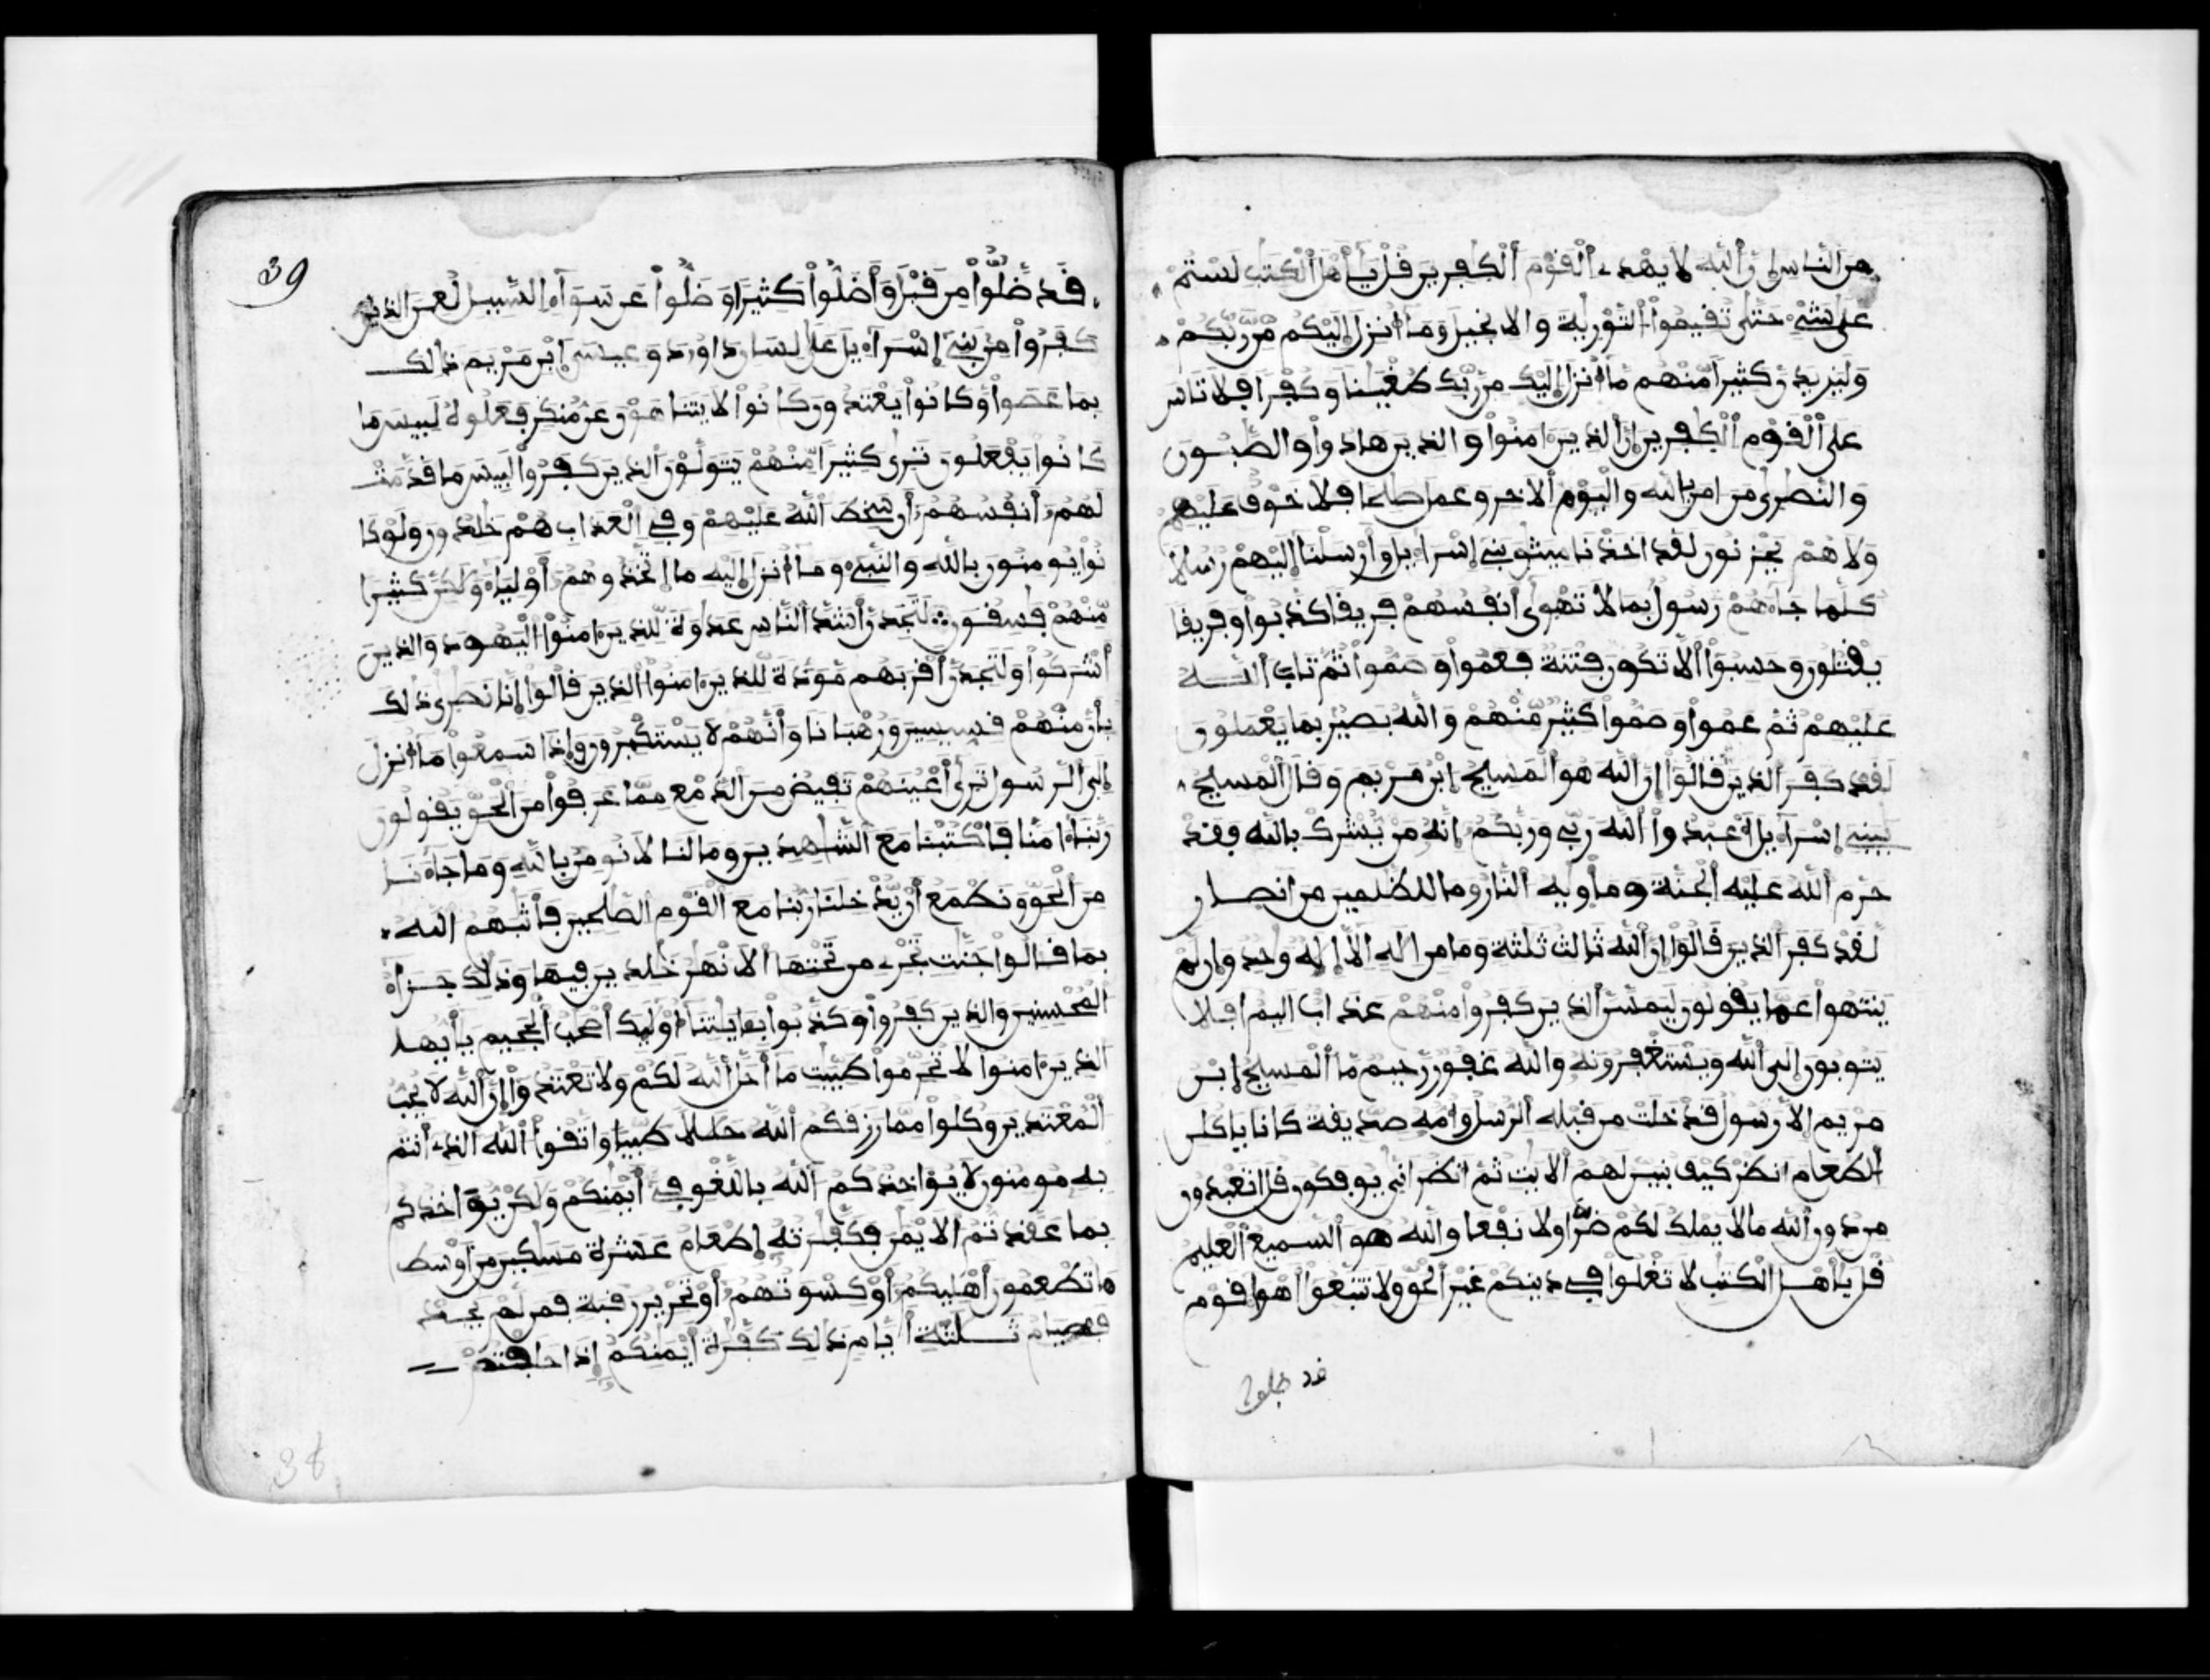 من الناس إن الله لا يهدي القوم الكفرين قل يأهل الكتب لستم
على شيء حتى تقيموا التورية والانجيل وما أنزل إليكم من ربكم
وليزيدن كثيرا منهم ما أنزل إليك من ربك طغينا وكفرا فلا تاس
على القوم الكفرين إن الذين ءامنوا والذين هادوا والصبون
والنصرى من امن بالله واليوم الاخر وعمل صلحا فلا خوف عليهم
ولا هم يحزنون لقد اخذنا ميثق بني إسراءيل وأرسلنا إليهم رسلا
كلما جاءهم رسول بما لا تهوى أنفسهم فريقا كذبوا وفريقا
يقتلون وحسبوا ألا تكون فتنة فعموا وصموا ثم تاب الله
عليهم ثم عموا وصموا كثير منهم والله بصير بما يعملون
لقد كفر الذين قالوا إن الله هو المسيح إبن مريم وقال المسيح
يبني إسراءيل أعبدوا الله ربي وربكم إنه من يشرك بالله فقد
حرم الله عليه الجنة ومأويه النار وما للظلمين من انصار
لقد كفر الذين قالوا إن الله ثالث ثلثة وما من اله الا إله وحد وإن لم
ينتهوا عما يقولون ليمسن الذين كفروا منهم عذاب اليم افلا
يتوبون إلى الله ويستغفرونه والله غفور رحيم ما المسيح إبن
مريم إلا رسول قد خلت من قبله الرسل وأمه صديقة كانا ياكلن
الطعام انظر كيف نبين لهم الايت ثم انظر انى يوفكون قل اتعبدون
من دون الله ما لا يملك لكم ضرا ولا نفعا والله هو السميع العليم
قل يأهل الكتب لا تغلوا في دينكم غير الحق ولا تتبعوا أهوا قوم
قد ضلوا
39
قد ضلوا من قبل وأضلوا كثيرا وضلوا عن سواء السبيل لعن الذين
كفروا من بني إسراءيل على لسان داورد وعيسى إبن مريم ذالك
بما عصوا وكانوا يعتدون كانوا لا يتناهون عن منكر فعلوه لبيس ما
كانوا يفعلون ترى كثيرا منهم يتولون الذين كفروا لبيس ما قدمت
لهم أنفسهم أن سخط الله عليهم وفي العذاب هم خلدون ولو كا
نوا يومنون بالله والنبيء وما أنزل إليه ما إتخذوهم أولياء ولكن كثيرا
منهم فسقون لتجدن أشد الناس عدوة للذين ءامنوا اليهود والذين
أشركوا ولتجدن أقربهم مودة للذين ءامنوا الذين قالوا إنا نصرى ذلك
بأن منهم قسيسين ورهبانا وأنهم لا يستكبرون وإذا سمعوا ما أنزل
إلى الرسول ترى أعينهم تفيض من الدمع مما عرفوا من الحق يقولون
ربنا ءامنا فاكتبنا مع الشهدين وما لنا لا نومن بالله وما جاءنا
من الحق ونطمع أن يدخلنا ربنا مع القوم الصلحين فأثبهم الله
بما قالوا جنت تجري من تحتها الانهر خلدين فيها وذلك جزاء
المحسنين والذين كفروا وكذبوا بءايتنا أوليك أصحب الجحيم يأيها
الذين ءامنوا لا تحرموا طيبت ما أحل الله لكم ولا تعتدوا إن الله لا يحب
المعتدين وكلوا مما رزقكم الله حللا طيبا واتقوا الله الذي أنتم
به مومنون لا يؤاخذكم الله باللغو في أيمنكم ولكن يؤاخذكم
بما عقدتم الايمن فكفرته إطعام عشرة مسكين من أوسط
ما تطعمون أهليكم أو كسوتهم أو تحرير رقبة فمن لم يجد
فصيام ثلثة أيام ذلك كفرة أيمنكم إذا حلفتم
38